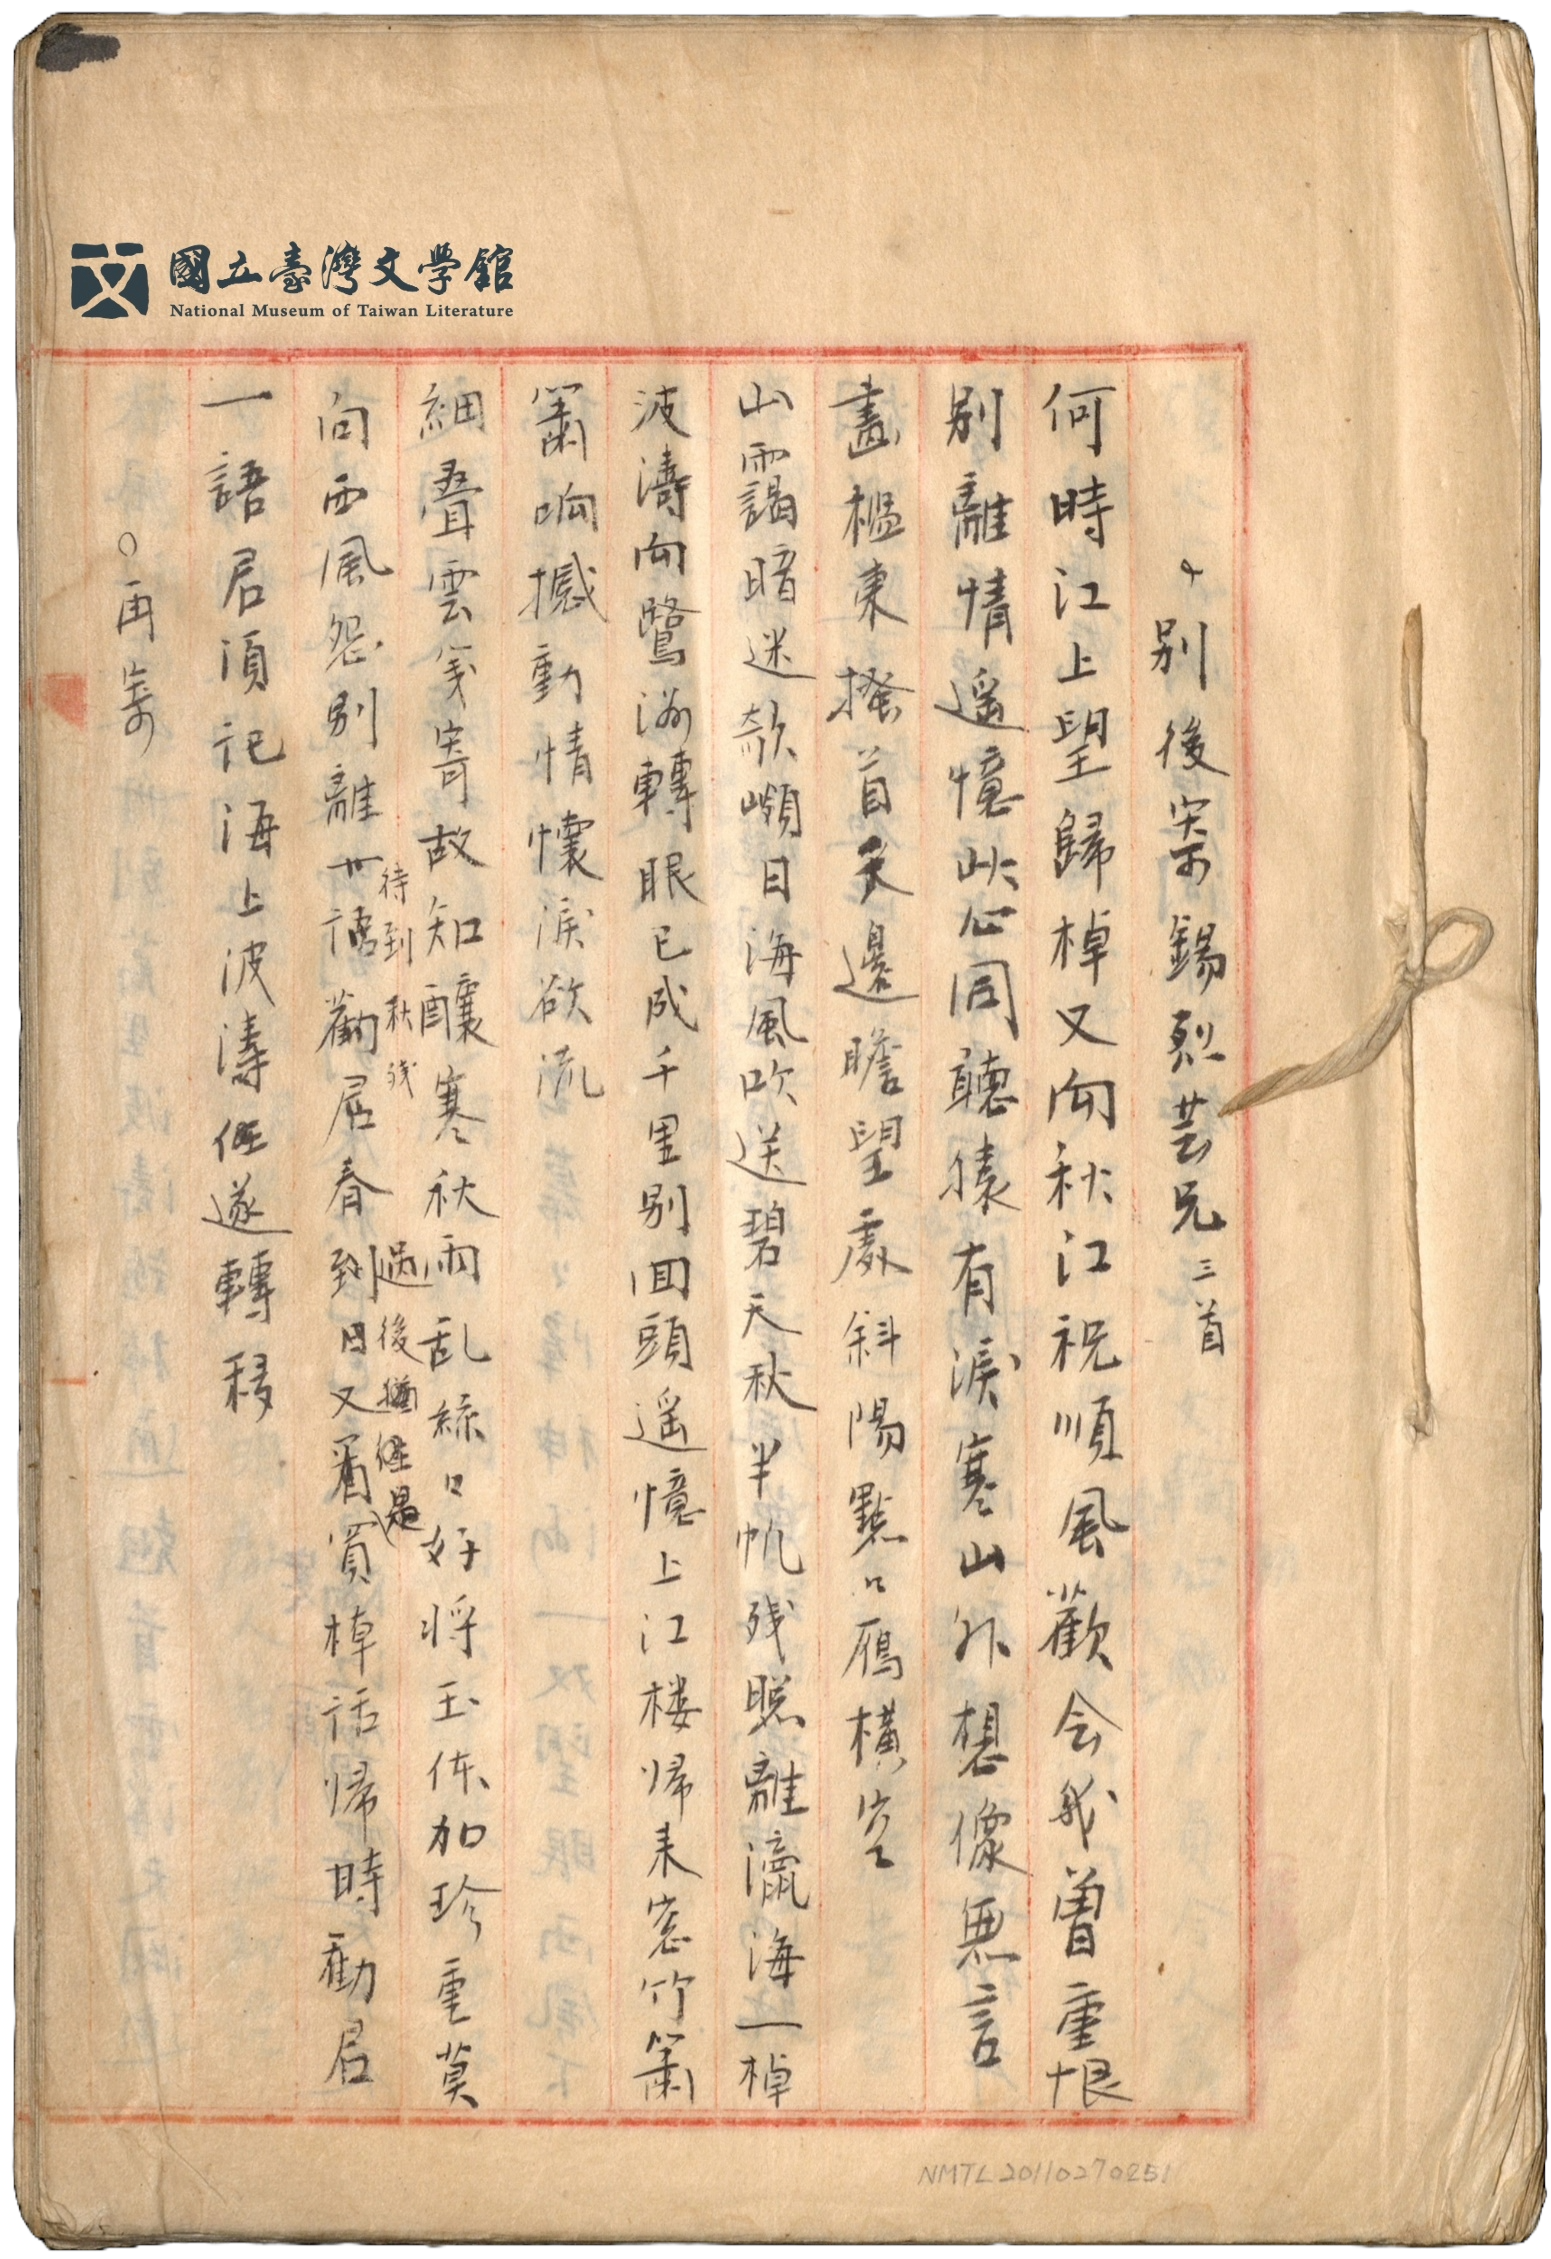 國立臺灣文學館
National Museum of Taiwan Literature
別後寄錫烈芸兄 三首
何時江上望歸棹又向秋江祝順風歡会我曽重恨
別離情遥憶此心同聽猿有淚寒山外想像無言
畫檻東搔首天邊瞻望處斜陽點〻雁橫空
山靄暗迷欹嶼日海風吹送碧天秋半帆残照離瀛海一棹
波濤向鷺洲轉眼已成千里別回頭遥憶上江楼帰来窓竹簫
簫响撼動情懷淚欲流
細聲雲箋寄故知釀寒秋雨乱絲〻好将玉体加珍重莫
向西風怨別離
待到秋残
勸居春到
過後猶経是
日又看買棹話帰時勸君
一語君須记海上波濤任遂轉移
○再寄
NMTL20110270251